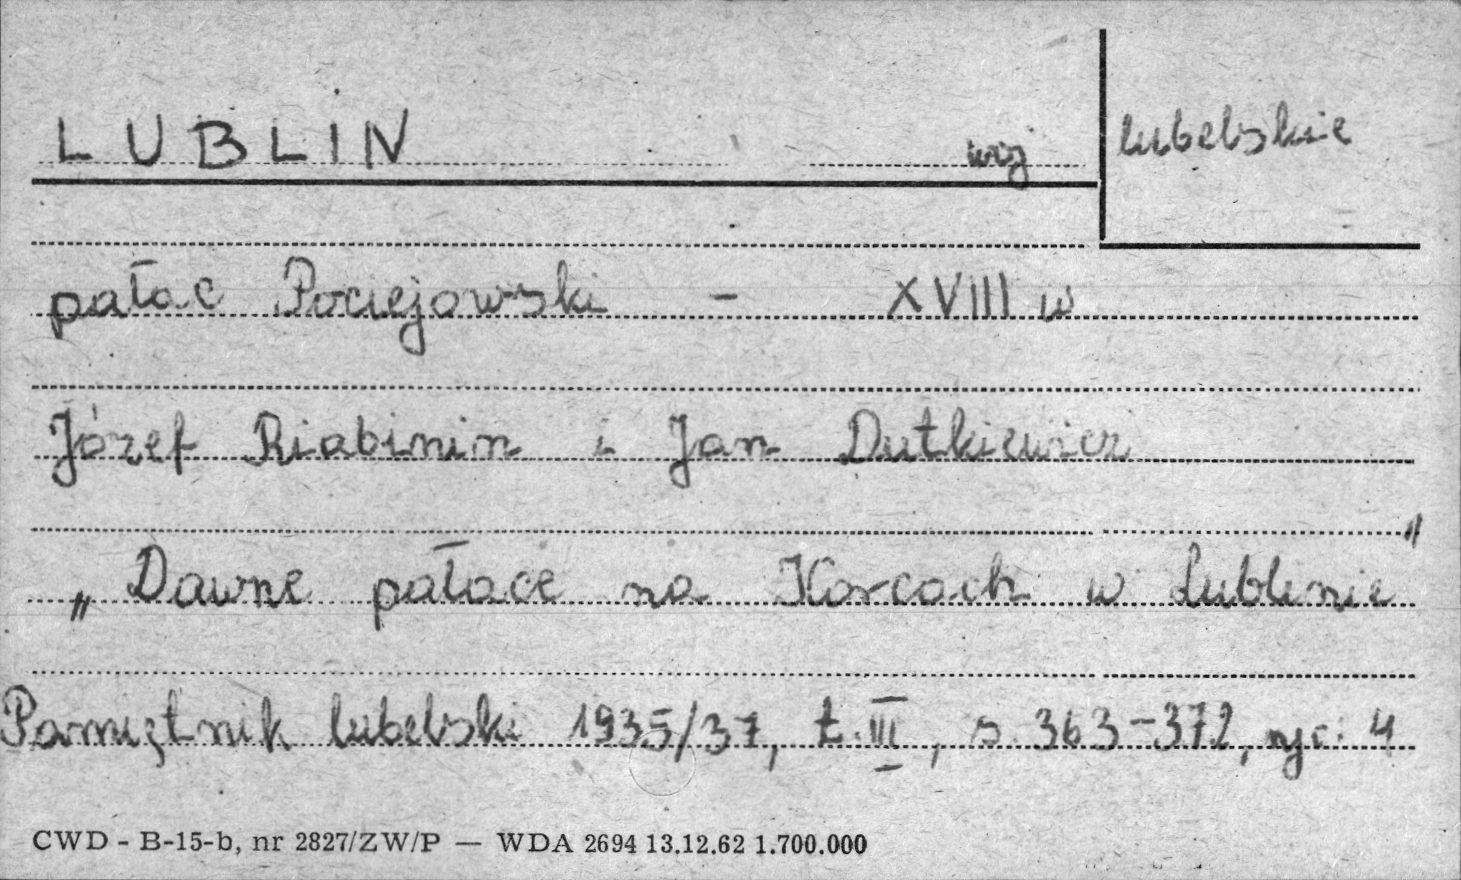 LUBLIN woj lubelskie
pałac Pociejowski - XVIII w
Józef Riabinin i Jan Dutkiewicz
„Dawne pałace na Korcach w Lublinie"
Pamiętnik lubelski 1935/37, t. III, s. 363-372, ryc: 4
CWD - B-15-b, nr 2827/ZW/P — WDA 2694 13.12.62 1.700.000